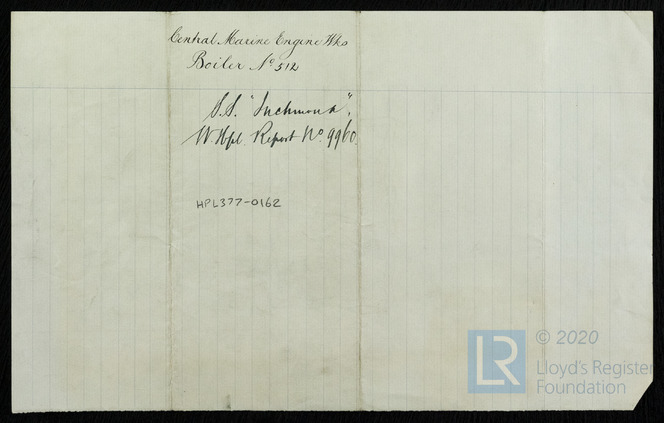 Central Marine Engine Wks
Boiler No 512
S.S. "Inchmona",
W. Hpl. Report No. 9960.
HPL377-0162
LR
© 2020
Lloyd's Register
Foundation